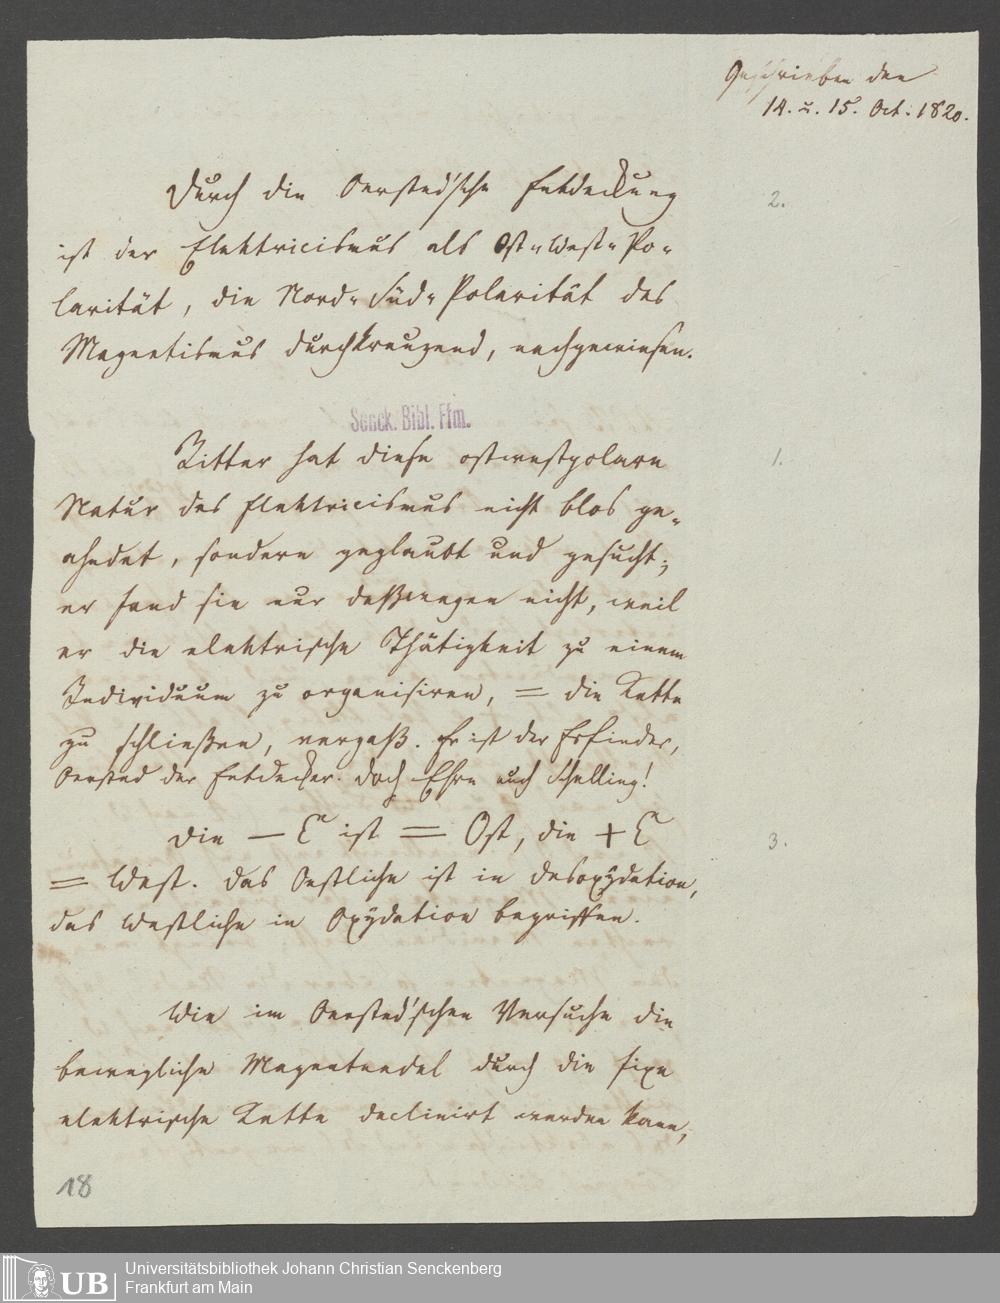 Geschrieben den
14. u. 15. Oct. 1820.
Durch die Oersted'sche Entdeckung
2.
ist der Elektricismus als Ost-West-Po-
larität, die Nord-Süd-Polarität des
Magnetismus durchkreuzend, nachgewiesen.
Senck. Bibl. Ffm.
Ritter hat diese ostwestpolare
1.
Natur des Elektricismus nicht blos ge-
ahndet, sondern geglaubt und gesucht;
er fand sie nur deßwegen nicht, weil
er die elektrische Thätigkeit zu einem
Individuum zu organisiren, = die Kette
zu schließen, vergaß. Er ist der Erfinder,
Oersted der Entdecker. Doch Ehre auch Schelling!
Die — E ist = Ost, die + E
3.
= West. Das Oestliche ist in Desoxydation,
das Westliche in Oxydation begriffen.
Wie im Oersted'schen Versuche die
bewegliche Magnetnadel durch die fixe
elektrische Kette declinirt werden kann,
18
UB
Universitätsbibliothek Johann Christian Senckenberg
Frankfurt am Main